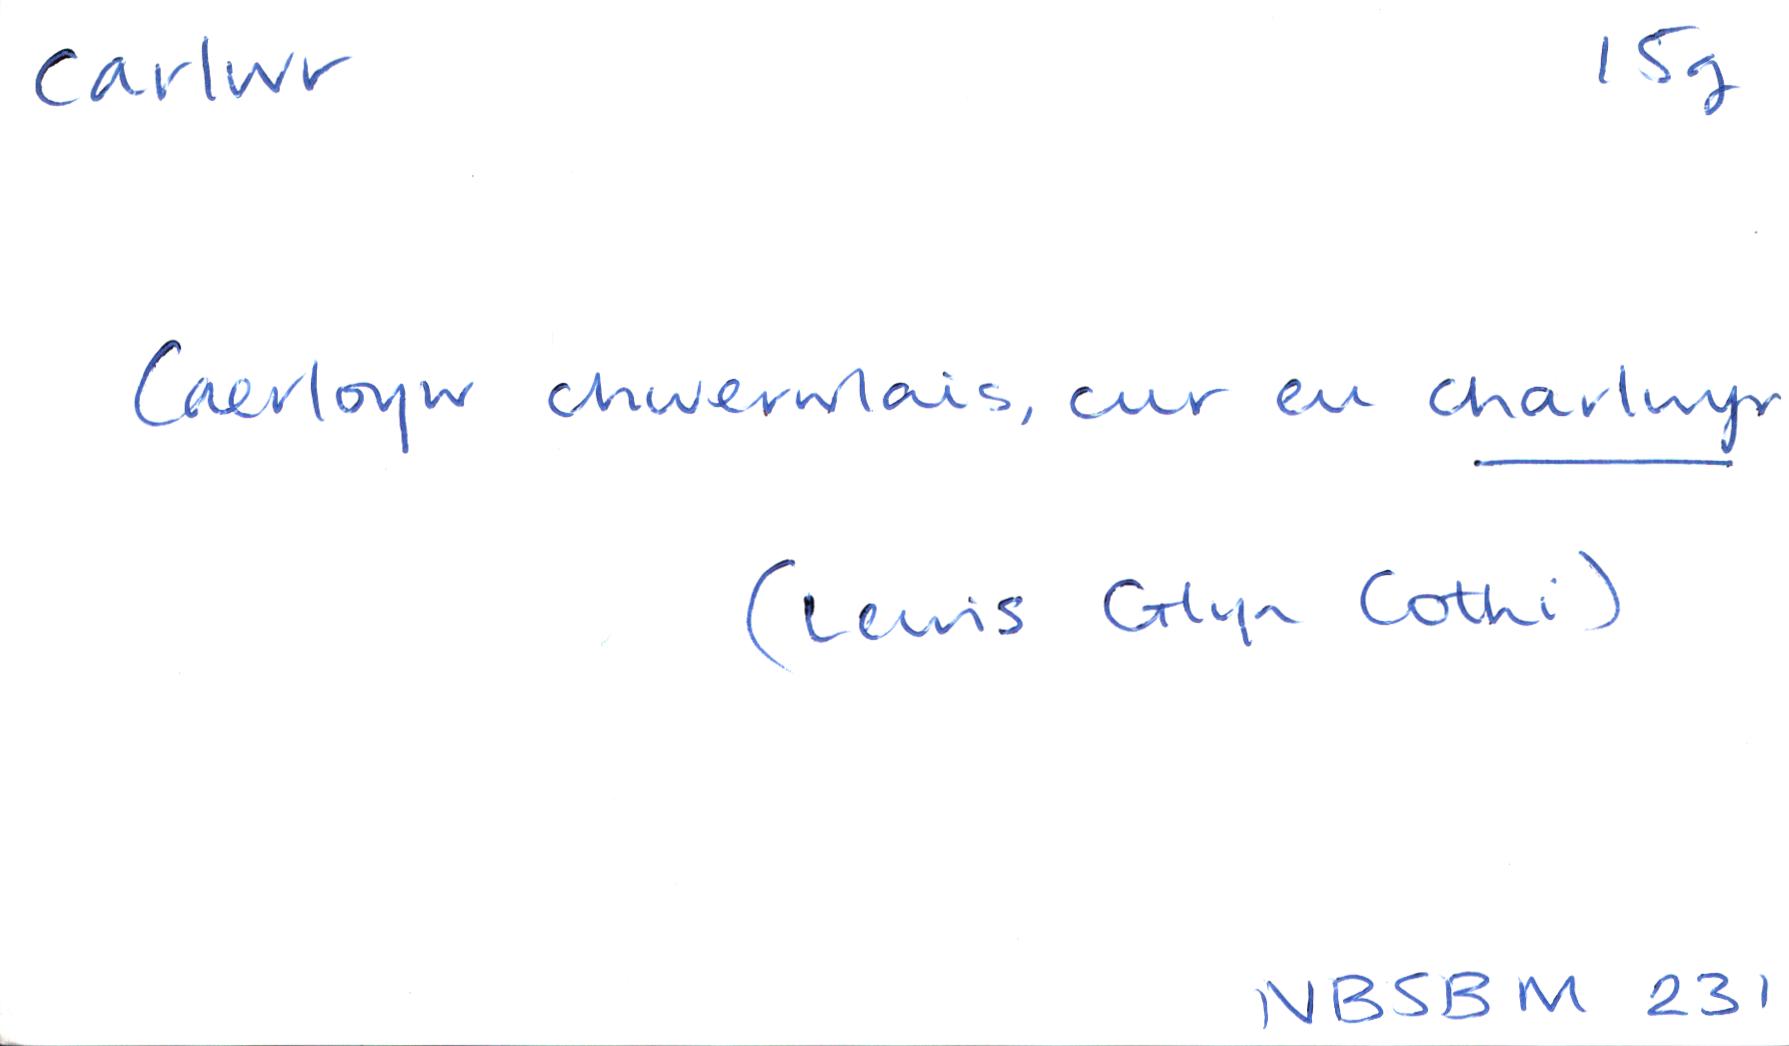 carlwr 15g
Caerloyw chwerwlais, cur eu charlwyr
(Lewis Glyn Cothi)
NBSBM 231